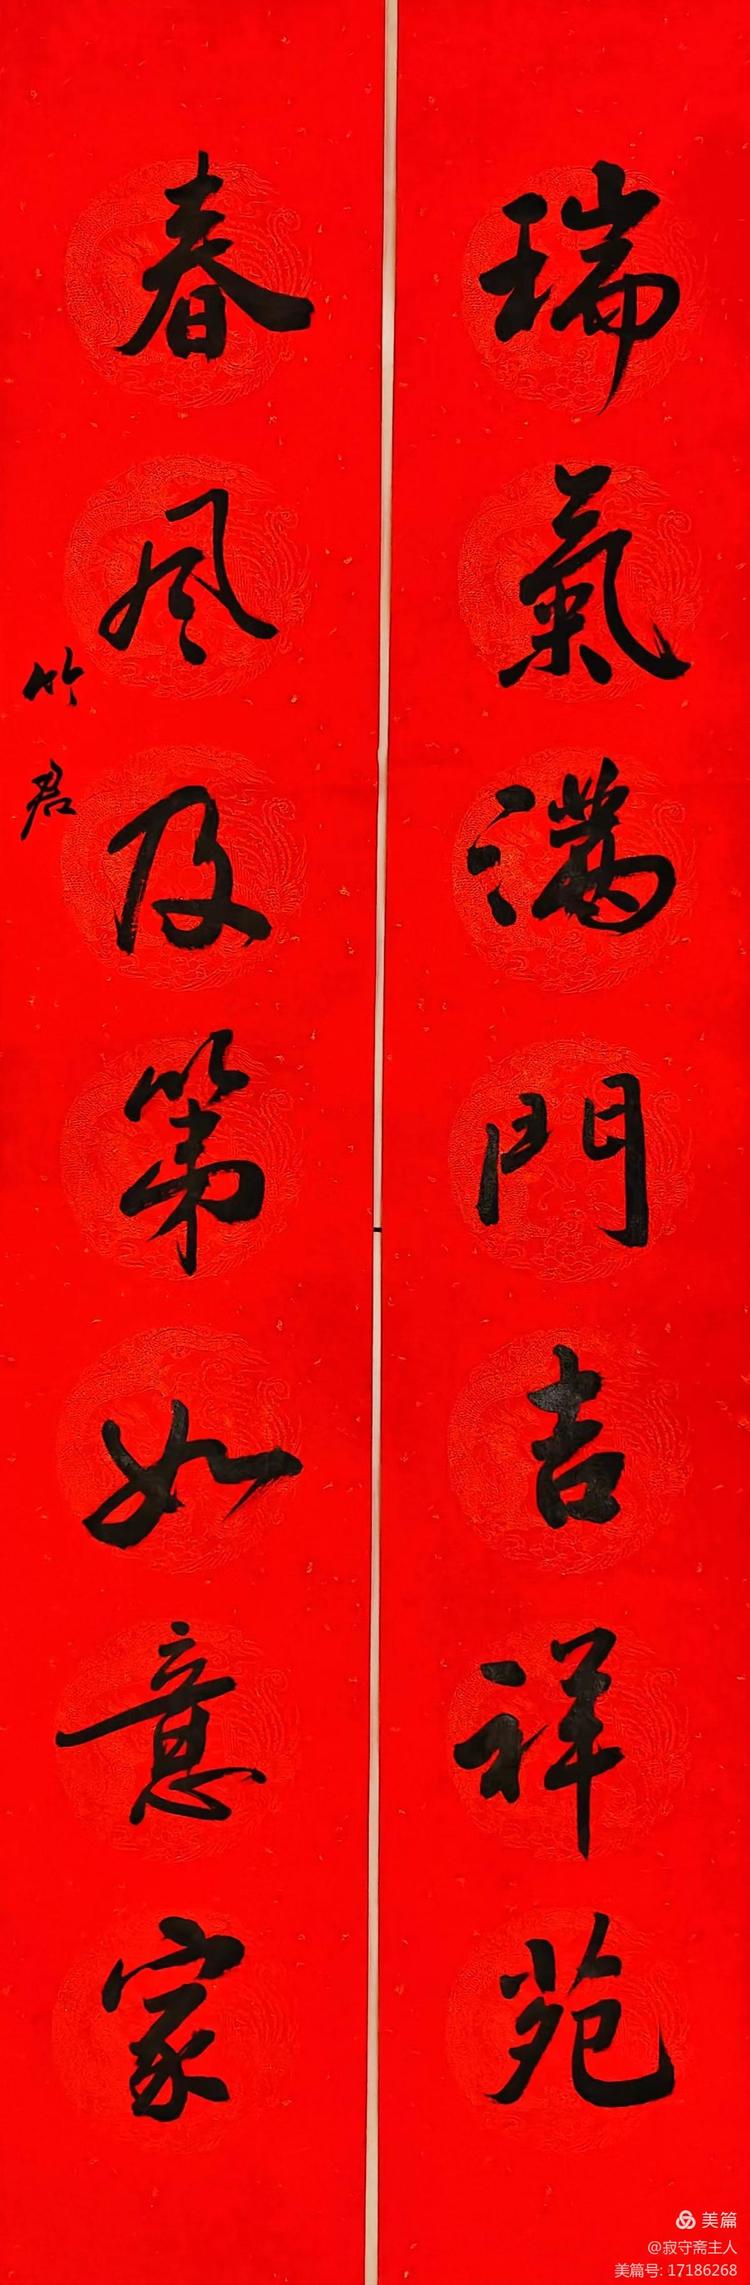 瑞氣满門吉祥苑
春风及第如意家
竹君
美篇
@寂守斋主人
美篇号: 17186268